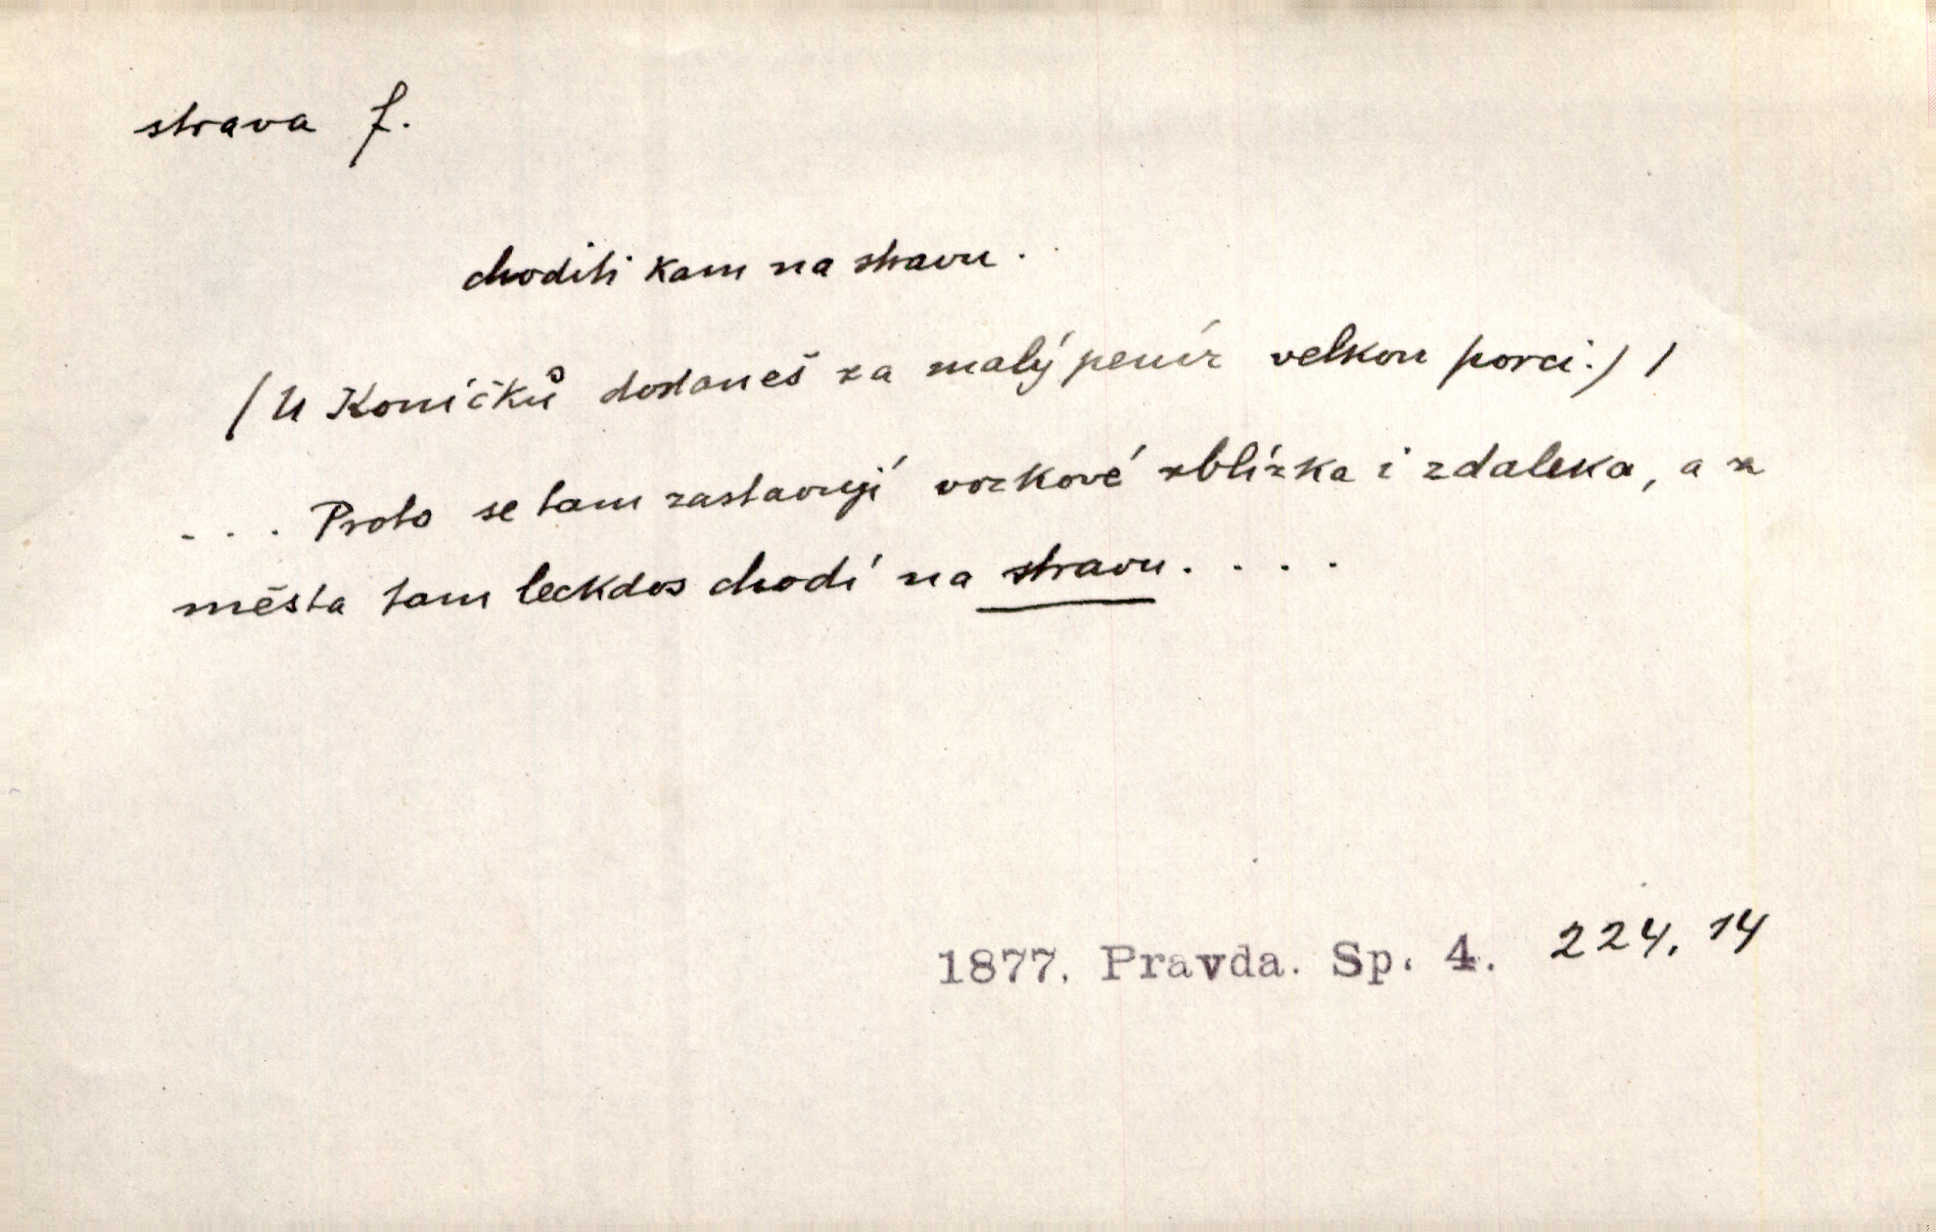 strava f.
choditi kam na stravu.
(U Koníčků dostaneš za malý peníz velkou porci.) /
... Proto se tam zastavují vozkové zblízka i zdaleka, a z
města tam leckdos chodí na stravu....
1877. Pravda. Sp. 4. 224, 14